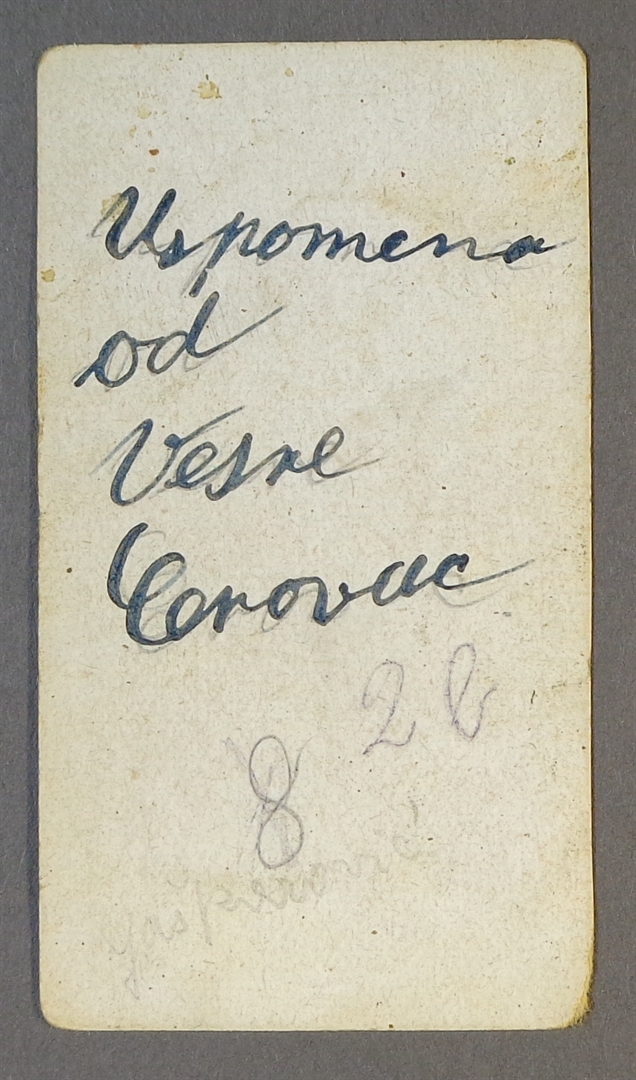 Uspomena
od
Vesne
Cerovac
2 b
8